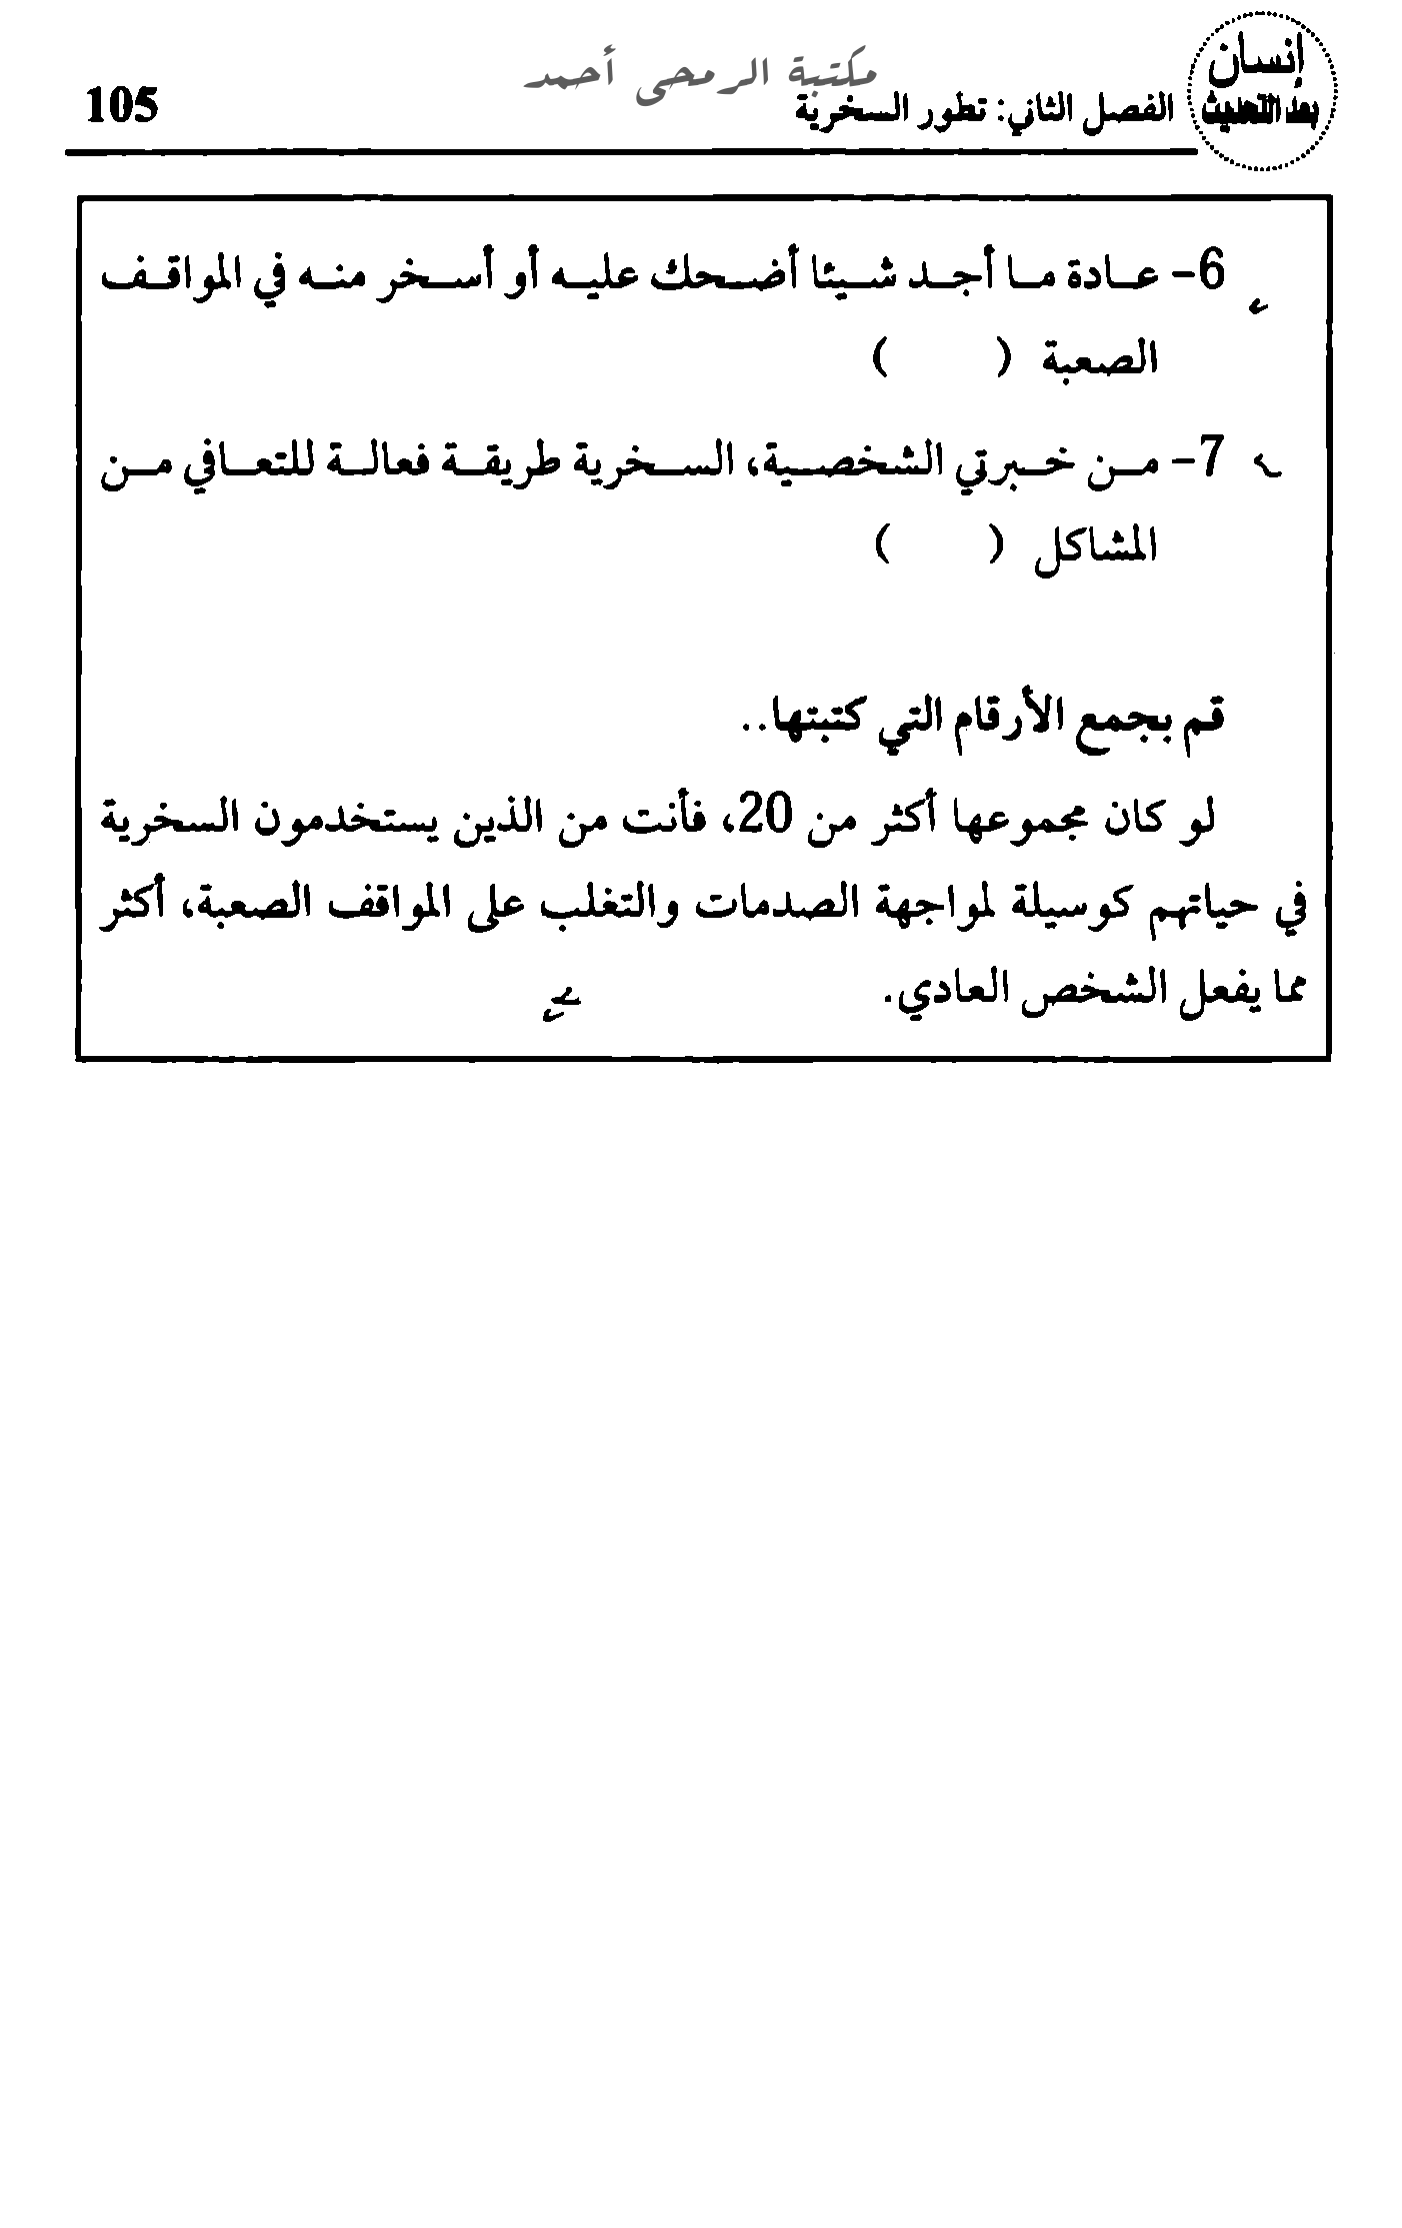 مكتبة الرمحى أحمد
إنسان
بعد التحديث
الفصل الثاني: تطور السخرية
105
6- عادة ما أجد شيئا أضحك عليه أو أسخر منه في المواقف
الصعبة ( )
7- من خبرتي الشخصية، السخرية طريقة فعالة للتعافي من
المشاكل ( )
قم بجمع الأرقام التي كتبتها..
لو كان مجموعها أكثر من 20، فأنت من الذين يستخدمون السخرية
في حياتهم كوسيلة لمواجهة الصدمات والتغلب على المواقف الصعبة، أكثر
مما يفعل الشخص العادي.